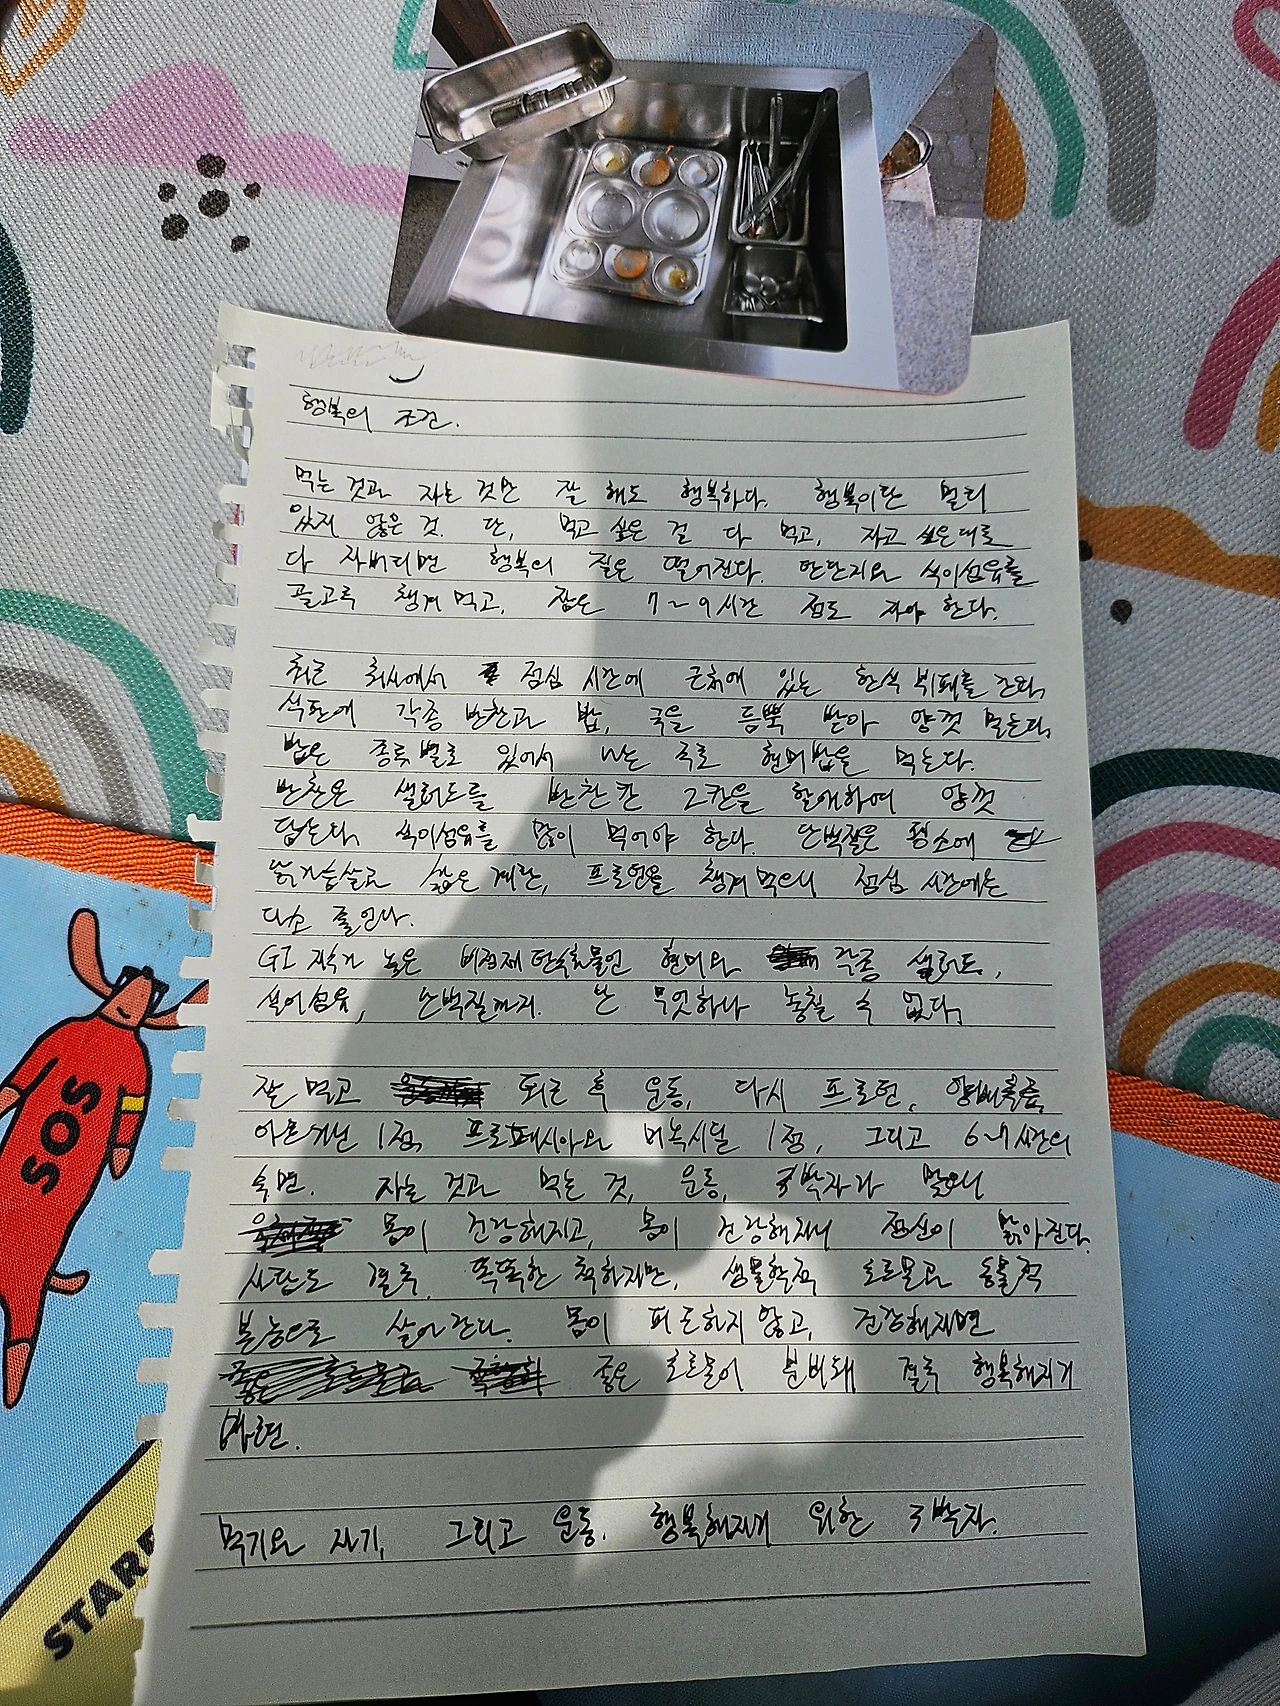 행복의 조건.
먹는 것과 자는 것만 잘 해도 행복하다. 행복이란 멀리
있지 않은 것. 단, 먹고 싶은 걸 다 먹고, 자고 싶은대로
다 자버리면 행복의 질은 떨어진다. 탄단지와 식이섬유를
골고루 챙겨 먹고, 잠은 7~9시간 정도 자야 한다.
최근 회사에서 점심 시간에 근처에 있는 한식 뷔페를 간다.
식판에 각종 반찬과 밥, 국을 듬뿍 받아 양껏 먹는다.
밥은 종류별로 있어서 나는 주로 현미밥을 먹는다.
반찬은 샐러드를 반찬칸 2칸을 할애하여 양껏
담는다. 식이섬유를 많이 먹어야 한다. 단백질은 평소에
닭가슴살과 삶은 계란, 프로틴을 챙겨 먹으니 점심 시간에는
다소 줄인다.
GI 지수가 높은 비정제 탄수화물인 현미와 각종 샐러드,
식이섬유, 단백질까지. 난 무엇하나 놓칠 수 없다.
잘 먹고 퇴근 후 운동, 다시 프로틴, 양배추즙,
아르기닌 1정, 프로페시아와 미녹시딜 1정, 그리고 6~7시간의
숙면. 자는 것과 먹는 것, 운동, 3박자가 맞으니
몸이 건강해지고, 몸이 건강해지니 정신이 맑아진다.
사람도 결국 똑똑한 척하지만, 생물학적 호르몬과 동물적
본능으로 살아간다. 몸이 피곤하지 않고, 건강해지면
좋은 호르몬이 분비돼 결국 행복해지기
마련.
먹기와 자기, 그리고 운동. 행복해지기 위한 3박자.
SOS